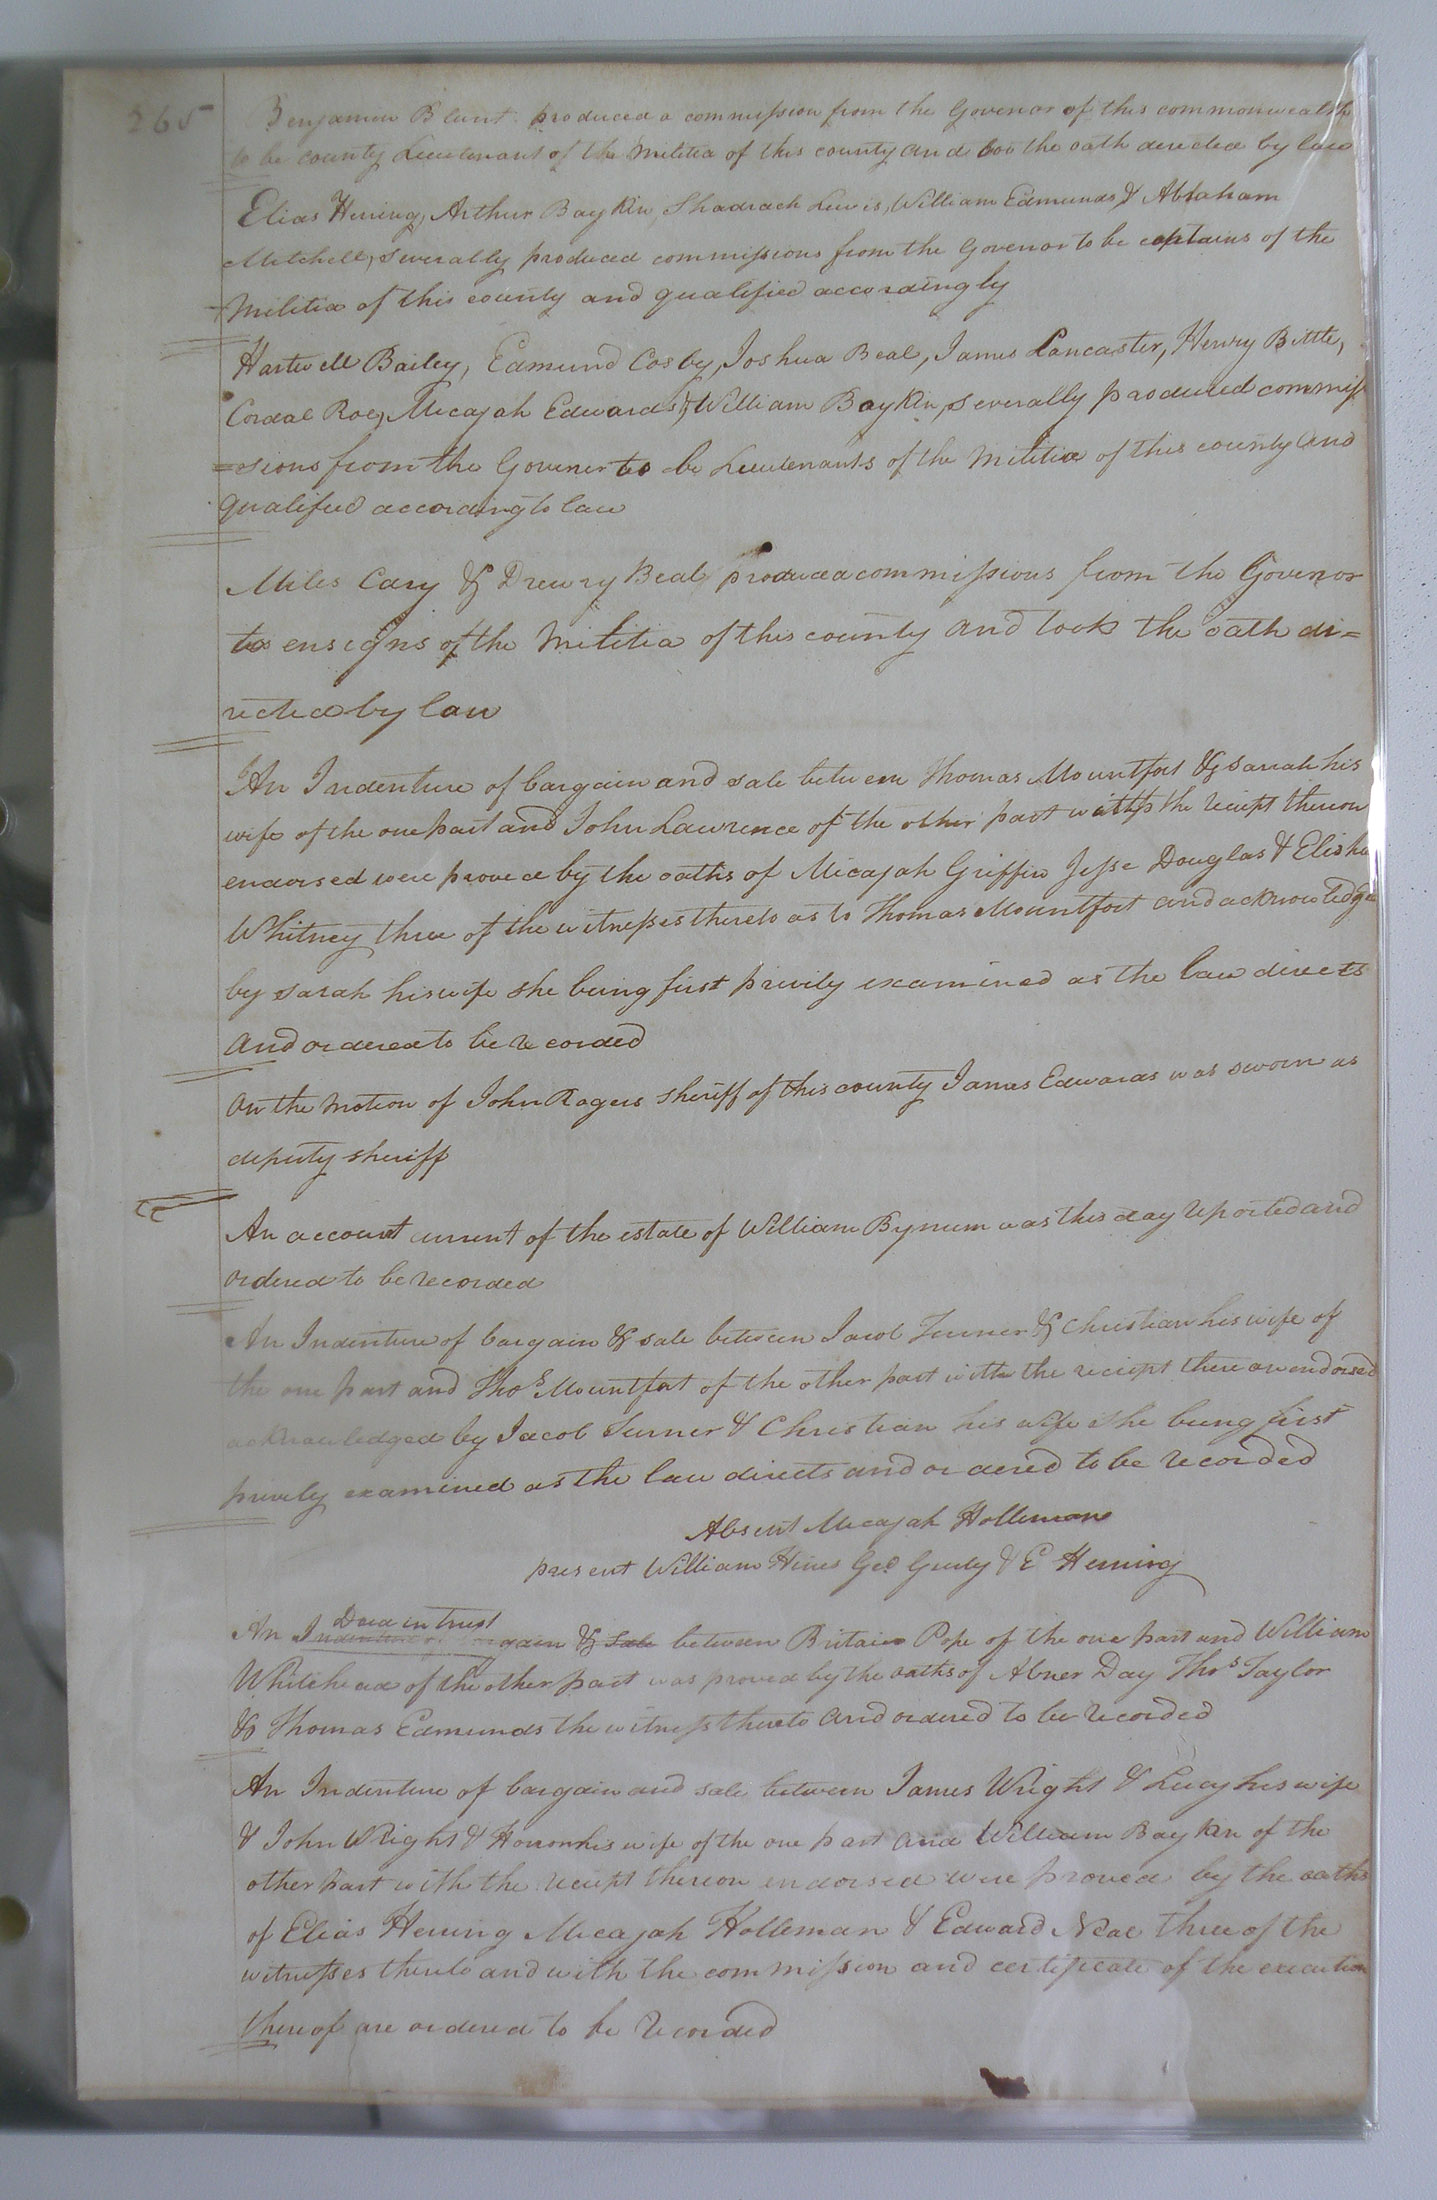 265
Benjamin Blunt produced a commission from the Govenor of this commonwealth
to be county Lieutenant of the Militia of this county and too the oath directed by law
Elias Herring, Arthur Boykin, Shadrach Lewis, William Edmunds & Abraham
Mitchell, severally produced commissions from the Govenor to be captains of the
Militia of this county and qualified accordingly
Hartwell Bailey, Edmund Cosby, Joshua Beal, James Lancaster, Henry Bittle,
Cordal Roe, Micajah Edwards & William Boykin, severally produced commis
=sions from the Govener to be Lieutenants of the Militia of this county and
qualified according to law
Miles Cary & Drewry Beal, produced commissions from the Govenor
to ensigns of the Militia of this county and took the oath di=
rected by law
An Indenture of bargain and sale between Thomas Mountfort & Sarah his
wife of the one part and John Lawrence of the other part with the reciept thereon
endorsed were proved by the oaths of Micajah Griffin Jesse Douglas & Elisha
Whitney three of the witnesses thereto as to Thomas Mountfort and acknowledged
by Sarah his wife she being first privily examined as the law directs
and ordered to be recorded
On the motion of John Rogers sheriff of this county James Edwards was sworn as
deputy sheriff
An account current of the estate of William Bynum was this day reported and
ordered to be recorded
An Indenture of bargain & sale between Jacob Turner & Christian his wife of
the one part and Thos Mountfort of the other part with the reciept thereon endorsed
acknowledged by Jacob Turner & Christian his wife she being first
privily examined as the law directs and ordered to be recorded
Absent Micajah Holleman
present William Hines Geo Gurly & E Herring
Deed in trust
An Indenture of bargain & sale between Britain Pope of the one part and William
Whitehead of the other part was proved by the oaths of Abner Day Thos Taylor
& Thomas Edmunds the witness thereto and ordered to be recorded
An Indenture of bargain and sale between James Wright & Lucy his wife
& John Wright & Honor his wife of the one part and William Boykin of the
other part with the reciept thereon endorsed were proved by the oaths
of Elias Herring Micajah Holleman & Edward Neal three of the
witnesses thereto and with the commission and certificate of the execution
thereof are ordered to be recorded